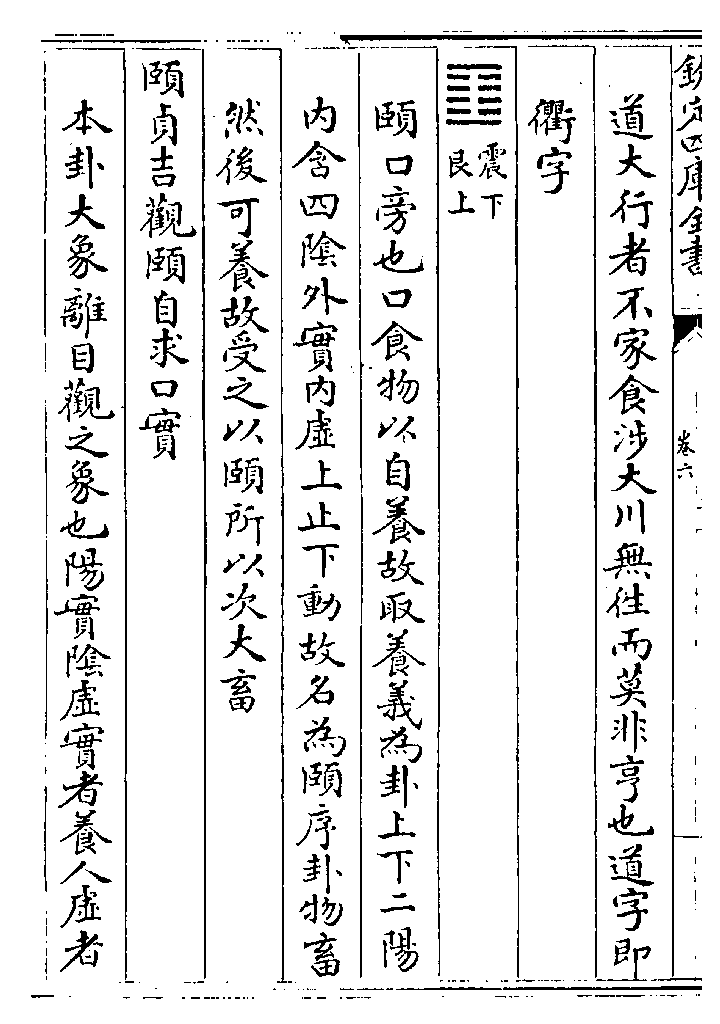 欽定四庫全書
卷六
道大行者不家食涉大川無往而莫非亨也道字即
衢字
䷚震下艮上
頤口旁也口食物以自養故取養義為卦上下二陽
内含四陰外實内虛上止下動故名為頤序卦物畜
然後可養故受之以頤所以次大畜
頤貞吉觀頤自求口實
本卦大象離目觀之象也陽實陰虛實者養人虛者